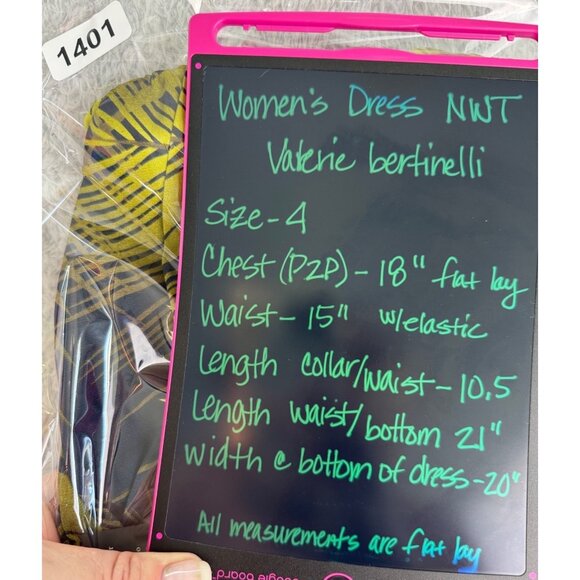 1401
Women's Dress NWT
Valerie bertinelli
Size - 4
Chest (P2P) - 18" flat lay
Waist - 15" w/elastic
Length collar/waist - 10.5
Length waist/bottom 21"
width @ bottom of dress - 20"
All measurements are flat lay
boogie board